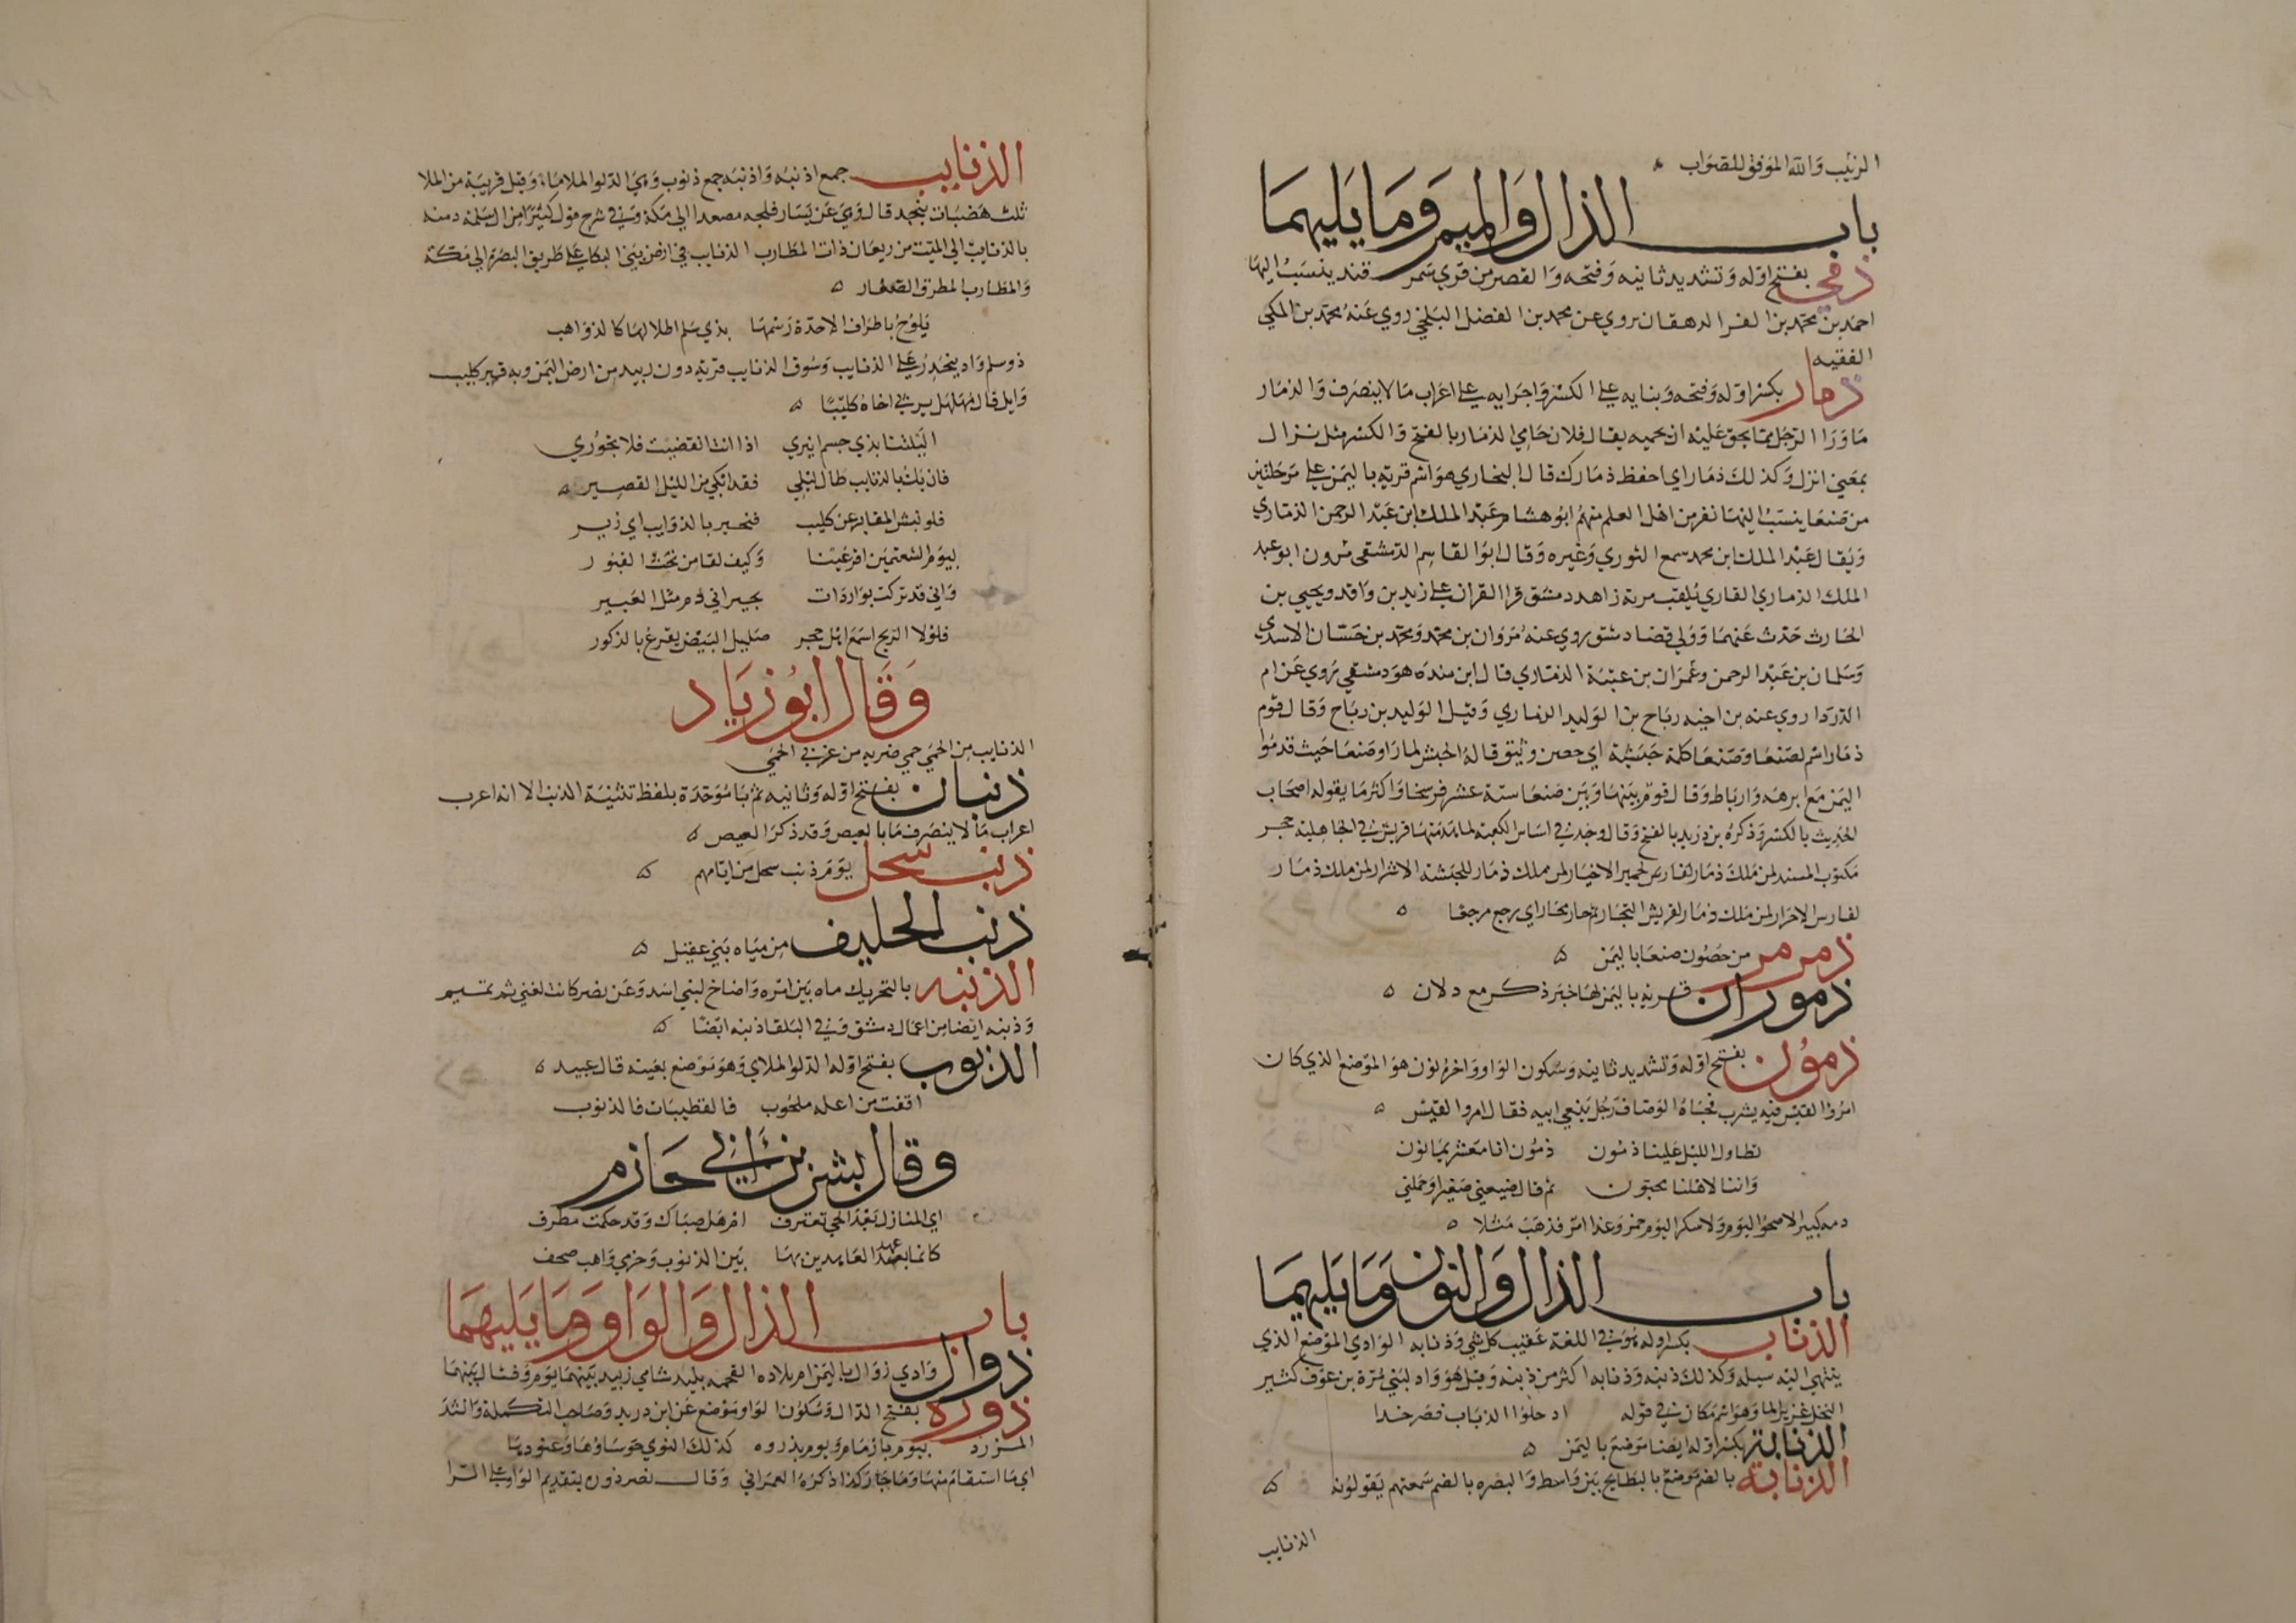 الزئيب والله الموفق للصواب
باب الذال والميم وما يليهما
ذمى بفتح اوله وتشديد ثانيه وفتحه والقصر من قري سمرقند ينسب اليها
احمد بن محمد بن الفر الدهقان يروي عن محمد بن الفضل البلخي روي عنه محمد بن المكي
الفقيه
ذمار بكسر اوله وفتحه وبنايه علي الكسر واجرايه علي اعراب مالا ينصرف والذمار
ما ورا الرجل مما يحق عليه ان يحميه يقال فلان حامي الذمار بالفتح والكسر مثل نزال
بمعني انزل وكذلك ذمار اي احفظ ذمارك قال البخاري هو اسم قرية باليمن علي مرحلتين
من صنعا ينسب اليها نفر من اهل العلم منهم ابو هشام عبد الملك ابن عبد الرحمن الذماري
ويقال عبد الملك ابن محمد سمع الثوري وغيره وقال ابو القاسم الدمشقي مرون ابو عبد
الملك الذماري القاري يلقب مزنة زاهد دمشق قرا القران علي زيد بن واقد ويحيي بن
الحارث حدث عنهما وولي قضا دمشق روي عنه مروان بن محمد ومحمد بن حسان الاسدي
وسلمان بن عبد الرحمن وعمران بن عتبة الذماري قال ابن منده هو دمشقي يروي عن ام
الدردا روي عنه بن اخيه رباح بن الوليد الذماري وقيل الوليد بن رباح وقال قوم
ذمار اسم لصنعا وصنعا كلمة حبشية اي حصين وثيق قاله الحبش لما راو صنعا حيث قدموا
اليمن مع ابرهه وارباط وقال قوم بينها وبين صنعا ستة عشر فرسخا واكثر ما يقوله اصحاب
الحديث بالكسر وذكره بن دريد بالفتح وقال وجد في اساس الكعبة لما هدمتها قريش في الجاهلية حجر
مكتوب المسند لمن ملك ذمار لحمير الاخيار لمن ملك ذمار للحبشة الاشرار لمن ملك ذمار
لفارس الاحرار لمن ملك ذمار لقريش التجار ثم حار محار اي رجع مرجعا
ذمرمر من حصون صنعا باليمن
ذموران قرية باليمن لها خبر ذكر مع دلان
ذمون بفتح اوله وتشديد ثانيه وسكون الواو واخره نون هو الموضع الذي كان
امرؤ القيس فيه يشرب فجاه الوصاف رجل ينعي ابيه فقال امرو القيس
تطاول الليل علينا ذمون ذمون انا معشر يمانون
واننا لاهلنا محبون ثم قال ضيعني صغيرا وحملني
دمه كبيرا لا صحو اليوم ولا سكر اليوم خمر وغدا امر فذهب مثلا
باب الذال والنون وما يليهما
الذناب بكسر اوله هو في اللغة عقيب كل شي وذنابه الوادي الموضع الذي
ينتهي اليه سيله وكذلك ذنبه وذنابه اكثر من ذنبه وقيل هو واد لبني مرة بن عوف كثير
النخل غزير الما وهو اسم مكان في قوله اد حلوا الذباب فصرخدا
الذنابة بكسر اوله ايضا موضع باليمن
الذنابة بالضم موضع بالبطايح بين واسط والبصره بالضم سمعتهم يقولونه
الذنايب
الذنايب جمع اذنبه واذنبه جمع ذنوب وهي الدلو الملا ماء وقيل قريبة من الملا
ثلث هضبات بنجد قال وهي عن يسار فلجه مصعدا الي مكة وفي شرح قول كثير امن ال سلمة دمنه
بالذنايب الي الميث من ريعان ذات المطارب الذنايب في ارض بني البكا علي طريق البصرة الي مكة
والمطارب المطرق الصغار
يلوح باطراف الاجدة رسمها بذي سلم اطلالها كالذواهب
ذو سلم واد ينحدر علي الذنايب وسوق الذنايب قرية دون زبيد من ارض اليمن وبه قبر كليب
وايل قال مهلهل يرثي اخاه كليبا
اليلتنا بذي حسم انيري اذا انت انقضيت فلا تحوري
فان يك بالذنايب طال ليلي فقد ابكي من الليل القصير
فلو نبش المقابر عن كليب فتخبر بالذوايب اي زير
بيوم الشعثمين اقر عينا وكيف لقا من تحت القبور
واني قد تركت بواردات بجيرا في دم مثل العبير
فلولا الريح اسمع اهل حجر صليل البيض يقرع بالذكور
وقال ابو زياد
الذنايب من الحمي حمي ضريه من غربي الحمي
ذنبان بفتح اوله وثانيه ثم با موحدة بلفظ تثنية الذنب الا انه اعرب
اعراب ما لا ينصرف ما بالعيص وقد ذكر العيص
ذنب سحل يوم ذنب سحل من ايامهم
ذنب الحليف من مياه بني عقيل
الذنبه بالتحريك ماه بين امره واضاخ لبني اسد وعن نصر كانت لغني ثم تميم
وذنبه ايضا من اعمال دمشق وفي البلقا ذنبه ايضا
الذنوب بفتح اوله الدلو الملاي وهو موضع بعينه قال عبيد
اقفت من اهله ملحوب فالقطبيات فالذنوب
وقال بشر بن ابي حازم
اي المنازل بعد الحي تعترف ام هل صباك وقد حكمت مطرف
كانما بعد عهد العابدين بها بين الذنوب وحزمي واهب صحف
باب الذال والواو وما يليهما
ذوال وادي زوال باليمن ام بلاده القحمه بليد شامي زبيد بينهما يوم وفشال بينهما
ذوره بفتح الذال وسكون الواو موضع عن ابن دريد وصاحب التكملة وانشد
المزرد بيوم بازمام ويوم بذروه كذلك النوي حوساؤها وعنودها
اي ما استقام منها وما جار كذا ذكره العمراني وقال نصر ذون بتقديم الواو علي الرا